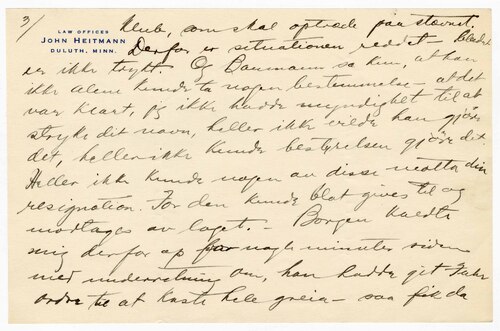 3/
LAW OFFICES
JOHN HEITMANN
DULUTH, MINN.
klub, som skal optræde paa stævnet.
Derfor er situationen reddet – bladet
er ikke trykt. Og Baumann sa hem, at han
ikke alene kunde ta nogen bestemmelse – at det
var klart, jeg ikke hadde myndighet til at
stryke dit navn, heller ikke vilde han gjøre
det, heller ikke kunde bestyrelsen gjøre det.
Heller ikke kunde nogen av disse motta din
resignation. For den kunde blot gives til og
modtages av laget. – Borgen kaldte
mig derfor op for nogle minutter siden
med underretning om, han hadde git
ordre til at kaste hele greia – saa fik da